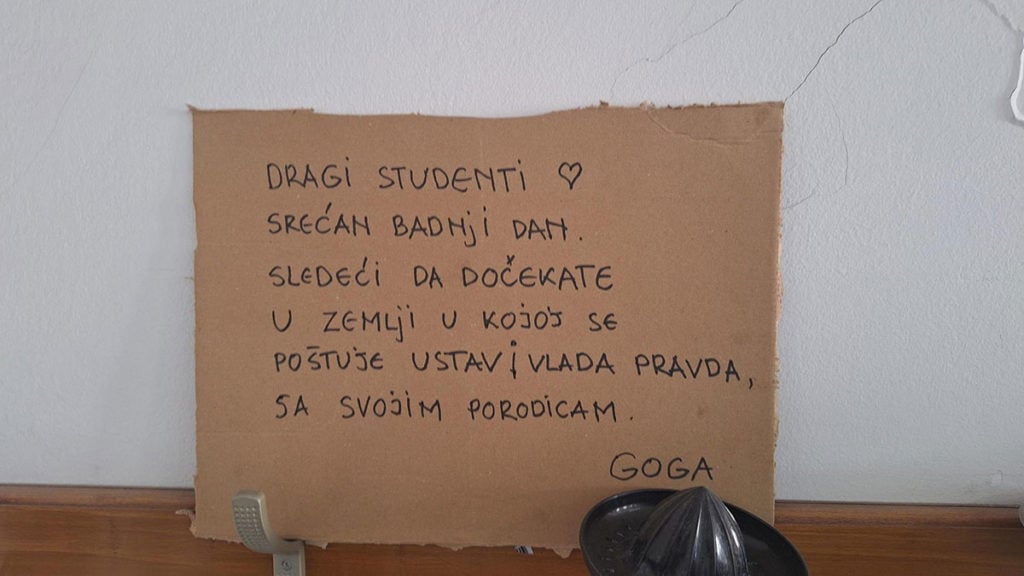 DRAGI STUDENTI ♡
SREĆAN BADNJI DAN.
SLEDEĆI DA DOČEKATE
U ZEMLJI U KOJOJ SE
POŠTUJE USTAV I VLADA PRAVDA,
SA SVOJIM PORODICAM.
GOGA